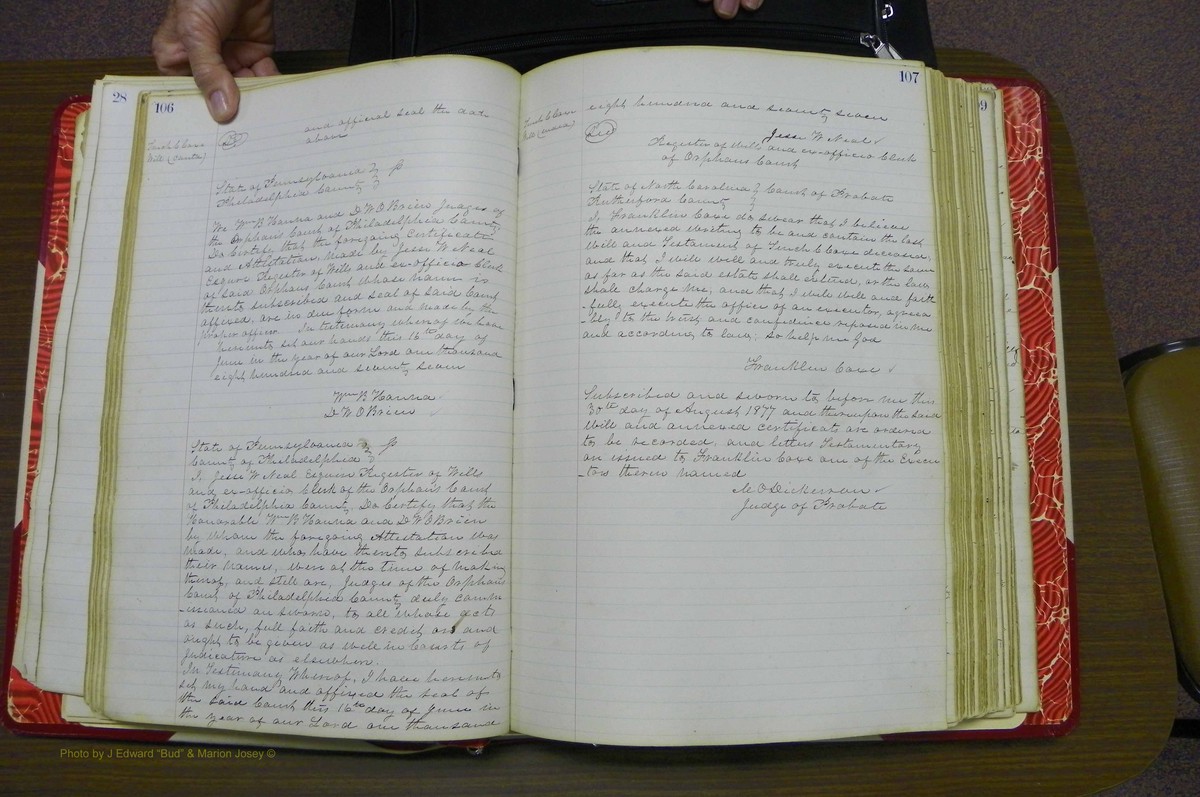 28 106
Tench C Coxe
Will (Contin)
and official seal the date
above
State of Pennsylvania
Philadelphia County
We Wm B Hanna and D W O Brien Judges of
the Orphans Court of Philadelphia County
Do Certify that the foregoing Certificate
and Attestation, made by Jesse W Neal
Esquire Register of Wills and ex-officio Clerk
of said Orphans Court whose name is
thereto subscribed and seal of said Court
affixed, are in due form and made by the
proper officer. In testimony whereof we have
hereunto set our hands this 16th day of
June in the year of our Lord one thousand
eight hundred and seventy seven
Wm B Hanna
D W O Brien
State of Pennsylvania
County of Philadelphia
I, Jesse W Neal Esquire Register of Wills
and ex-officio Clerk of the Orphans Court
of Philadelphia County, Do Certify that the
Honorable Wm B Hanna and D W O Brien
by whom the foregoing Attestation was
made, and who have thereto subscribed
their names, were at the time of making
thereof, and still are, Judges of the Orphans
Court of Philadelphia County, duly comm
-issioned an sworn, to all whose acts
as such, full faith and credit are and
ought to be given as well in Courts of
Judicature as elsewhere.
In Testimony Whereof, I have hereunto
set my hand and affixed the seal of
the said Court this 16th day of June in
the year of our Lord one thousand
107
Tench C Coxe
Will (Contin)
eight hundred and seventy seven
Jesse W Neal
Register of Wills and ex-officio Clerk
of Orphans Court
State of North Carolina Court of Probate
Rutherford County
I, Franklin Coxe do swear that I believe
the annexed writing to be and contain the last
Will and Testament of Tench C Coxe deceased,
and that I will well and truly execute the same
as far as the said estate shall extend, or the law
shall charge me, and that I will well and faith
-fully execute the office of an executor, agreea
-bly to the trust and confidence reposed in me
and according to law; So help me God
Franklin Coxe
Subscribed and sworn to before me this
30th day of August 1877 and thereupon the said
Will and annexed certificate are ordered
to be recorded, and letters Testamentary
are issued to Franklin Coxe one of the Execu
-tors therein named
M O Dickerson
Judge of Probate
Photo by J Edward "Bud" & Marion Josey ©